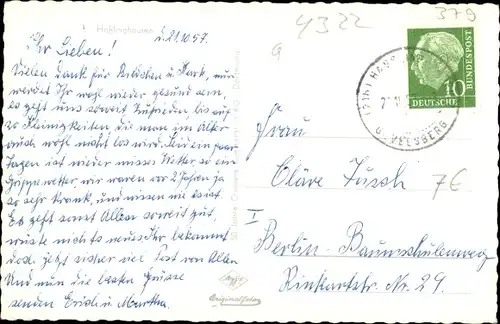 Haßlinghausen
d. 21.10.57.
4322
379
Ihr Lieben!
Vielen Dank für Kärtchen u Park, nun
werdet Ihr wohl wieder gesund sein.
es geht uns soweit zufrieden, bis auf
so Kleinigkeiten die man im Alter
auch wohl nicht los wird. Seid ein paar
Tagen ist wieder mieses Wetter, so ein
Grippewetter, wir waren vor 2 Jahren ja
so sehr krank, und wissen wie es ist.
Es geht sonst Allen soweit gut,
wüste nichts neues, Ihr bekommt
doch jetzt sicher viel Post von Allen
Und nun die besten Grüsse
senden Erich u Martha.
10
DEUTSCHE
BUNDESPOST
Frau
Cläre Fusch
7€
I
Berlin-Baumschulenweg
Kiefholzstr. Nr. 29.
Agfa
Originalfoto